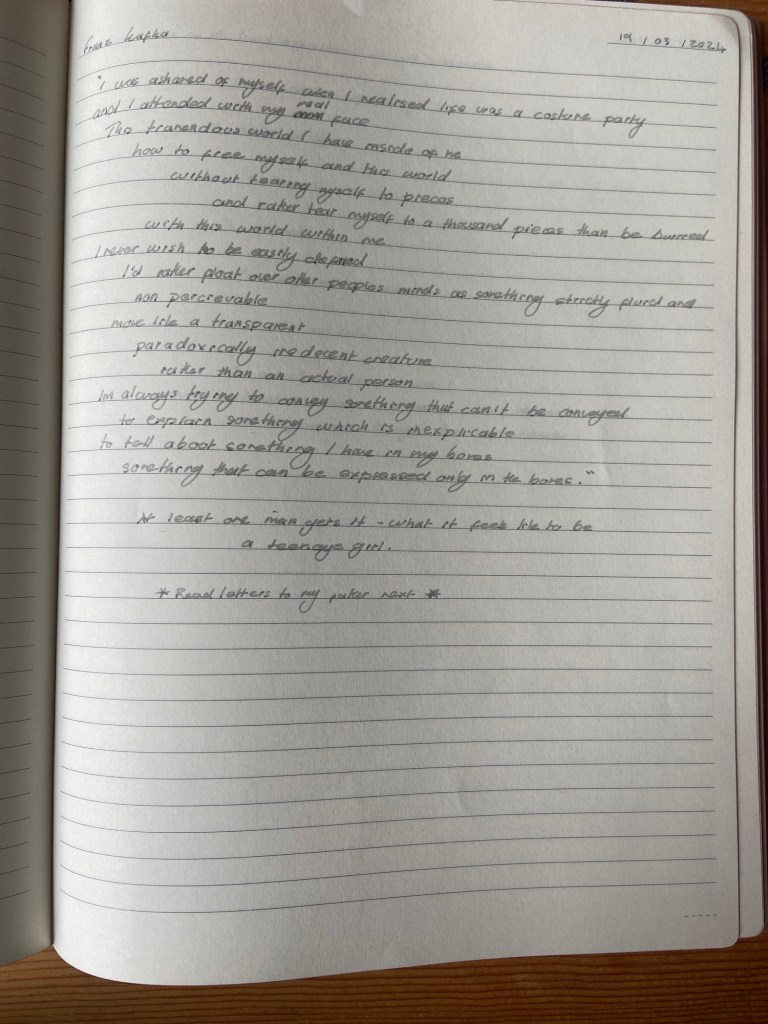 franz kafka
19 / 03 / 2024
"i was ashamed of myself when I realised life was a costume party
and I attended with my real face
The tremendous world I have inside of me
how to free myself and this world
without tearing myself to pieces
and rather tear myself to a thousand pieces than be burried
with this world within me
I never wish to be easily defined
I'd rather float over other peoples minds as something strictly fluid and
non percievable
more like a transparent
paradoxically iredecent creature
rather than an actual person
Im always trying to convey something that can't be conveyed
to explain something which is inexplicable
to tell about something I have in my bones
something that can be expressed only in the bones."
At least one man gets it - what it feels like to be
a teenage girl.
* Read letters to my father next *